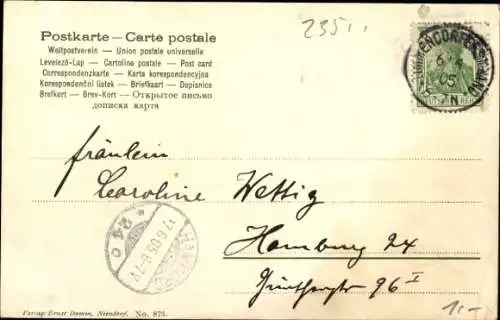 235..
Postkarte — Carte postale
Weltpostverein — Union postale universelle
Levelező-Lap — Cartolina postale — Post card
Correspondenzkarte — Karta korespondencyjna
Korespondenční lístek — Briefkaart — Dopisnice
Brefkort — Brev-Kort — Открытое письмо
дописна карта
05
N
Fräulein
Caroline Wettig
Hamburg 24
96 I
17.6.05.8-7V
* 24 c
Verlag Ernst Niendorf. No. 873.
1.-